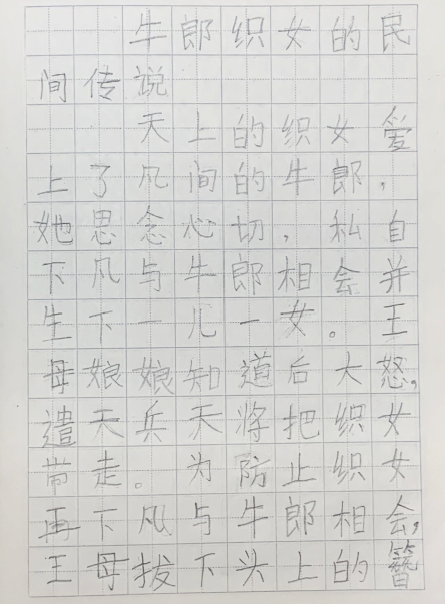 牛郎织女的民
间传说
天上的织女爱
上了凡间的牛郎，
她思念心切，私自
下凡与牛郎相会并
生下一儿一女。王
母娘娘知道后大怒，
遣天兵天将把织女
带走。为防止织女
再下凡与牛郎相会，
王母拔下头上的簪